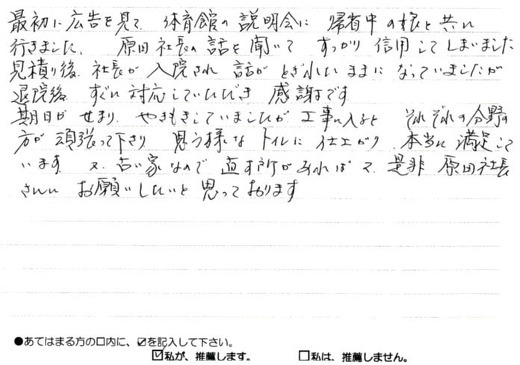 最初に広告を見て、体育館の説明会に 帰省中の娘と共に
行きました。 原田社長の話を聞いて すっかり信用してしまいました
見積り後、社長が入院され 話がとぎれたままになっていましたが
退院後 すぐに対応していただき 感謝です
期日がせまり、やきもきしていましたが 工事に入ると それぞれの分野の
方が頑張って下さり 思う様なトイレに仕上がり、本当に満足して
います 又、古い家なので 直す所があれば 又、是非 原田社長
さんに お願いしたいと思っております
●あてはまる方の口内に、☑を記入して下さい。
☑私が、推薦します。 □私は、推薦しません。